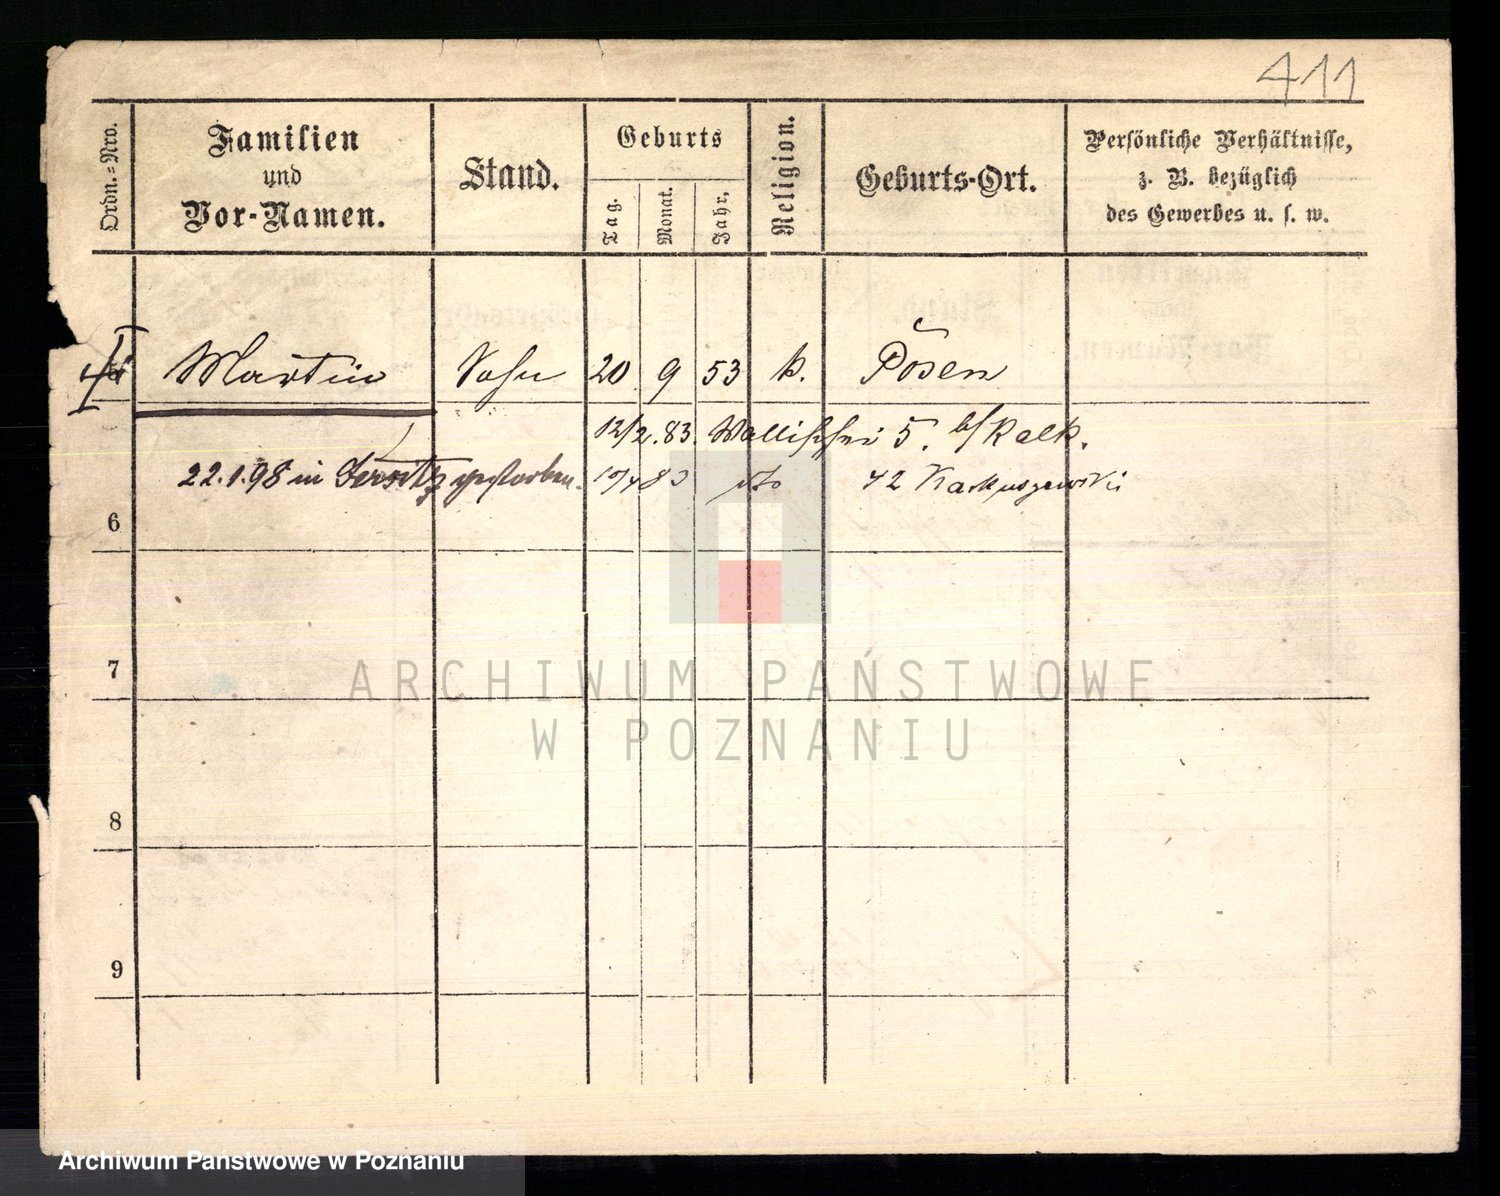 411
Ordn.-Nro.
Familien
und
Vor-Namen.
Stand.
Geburts
Tag.
Monat.
Jahr.
Religion.
Geburts-Ort.
Persönliche Verhältnisse,
z. B. bezüglich
des Gewerbes u. s. w.
Martin Sohn 20 9 53 k. Posen
12/2.83. Wallischei 5. b/Kalk.
22.1.98 in Jersitz gestorben. 10/4 83 dto 42
6
7
ARCHIWUM PAŃSTWOWE
W POZNANIU
8
9
Archiwum Państwowe w Poznaniu